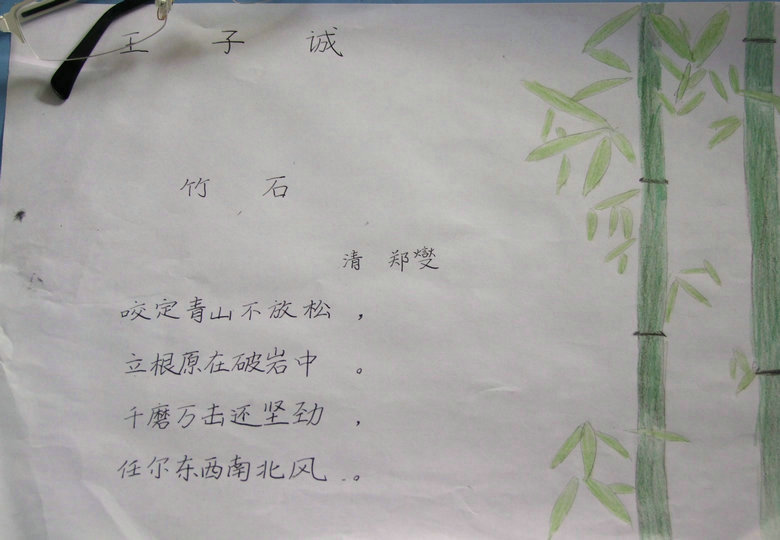 王子诚
竹石
清 郑燮
咬定青山不放松，
立根原在破岩中。
千磨万击还坚劲，
任尔东西南北风。